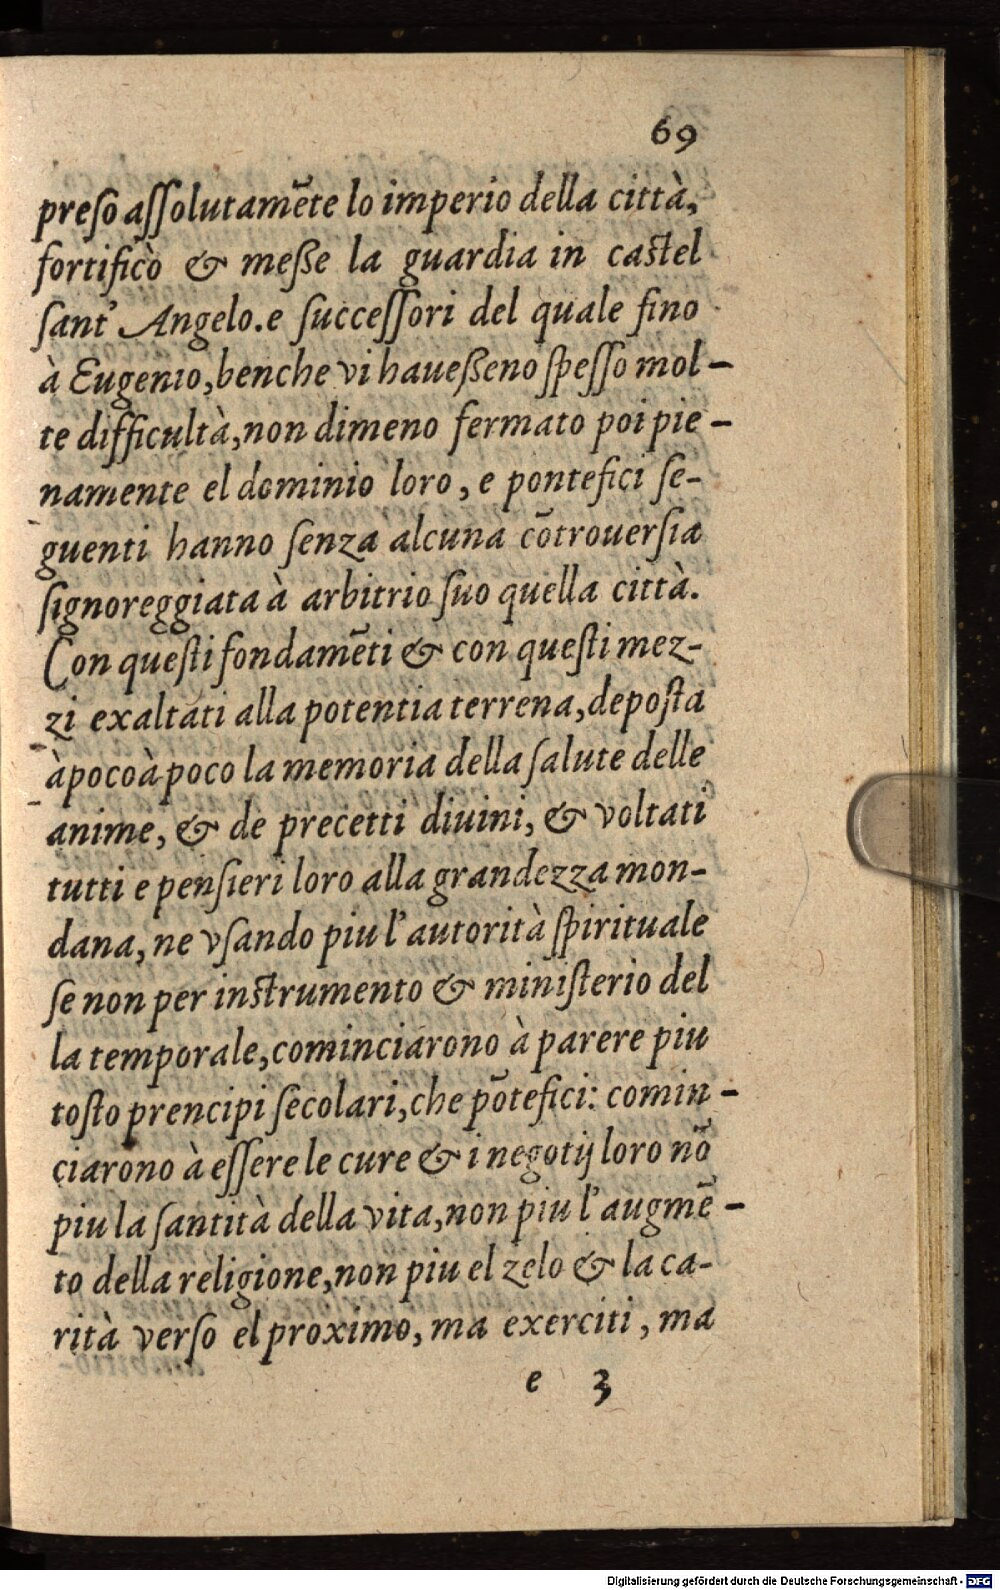 69
preſo aſſolutamēte lo imperio della città,
fortificò & meſſe la guardia in caſtel
ſant' Angelo. e ſucceſſori del quale fino
à Eugenio, benche vi haueſſeno ſpeſſo mol-
te difficultà, non dimeno fermato poi pie-
namente el dominio loro, e pontefici ſe-
guenti hanno ſenza alcuna cōtrouerſia
ſignoreggiata à arbitrio ſuo quella città.
Con queſti fondamēti & con queſti mez-
zi exaltati alla potentia terrena, depoſta
à poco à poco la memoria della ſalute delle
anime, & de precetti diuini, & voltati
tutti e penſieri loro alla grandezza mon-
dana, ne vſando piu l'autorità ſpirituale
ſe non per inſtrumento & miniſterio del
la temporale, cominciarono à parere piu
toſto prencipi ſecolari, che pōtefici: comin-
ciarono à eſſere le cure & i negotij loro nō
piu la ſantità della vita, non piu l'augmē-
to della religione, non piu el zelo & la ca-
rità verſo el proximo, ma exerciti, ma
e 3
Digitalisierung gefördert durch die Deutsche Forschungsgemeinschaft - DFG